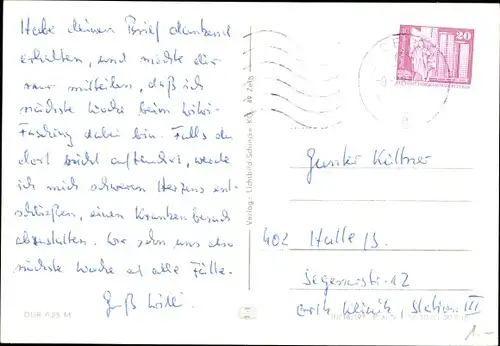 Habe deinen Brief dankend
erhalten, und möchte dir
nur mitteilen, daß ich
nächste Woche beim
Fasching dabei bin. Falls du
dort nicht auftauchst, werde
ich mich schweren Herzens ent-
schließen, einen Krankenbesuch
abzustatten. Wir sehn uns also
nächste Woche auf alle Fälle.
Gruß Willi
DDR 0,25 M
Verlag: Lichtbild-Schincke KG. · 49 Zeitz
20
Gunter Küttner
402 Halle/S.
12
Klinik, Station III
1.-